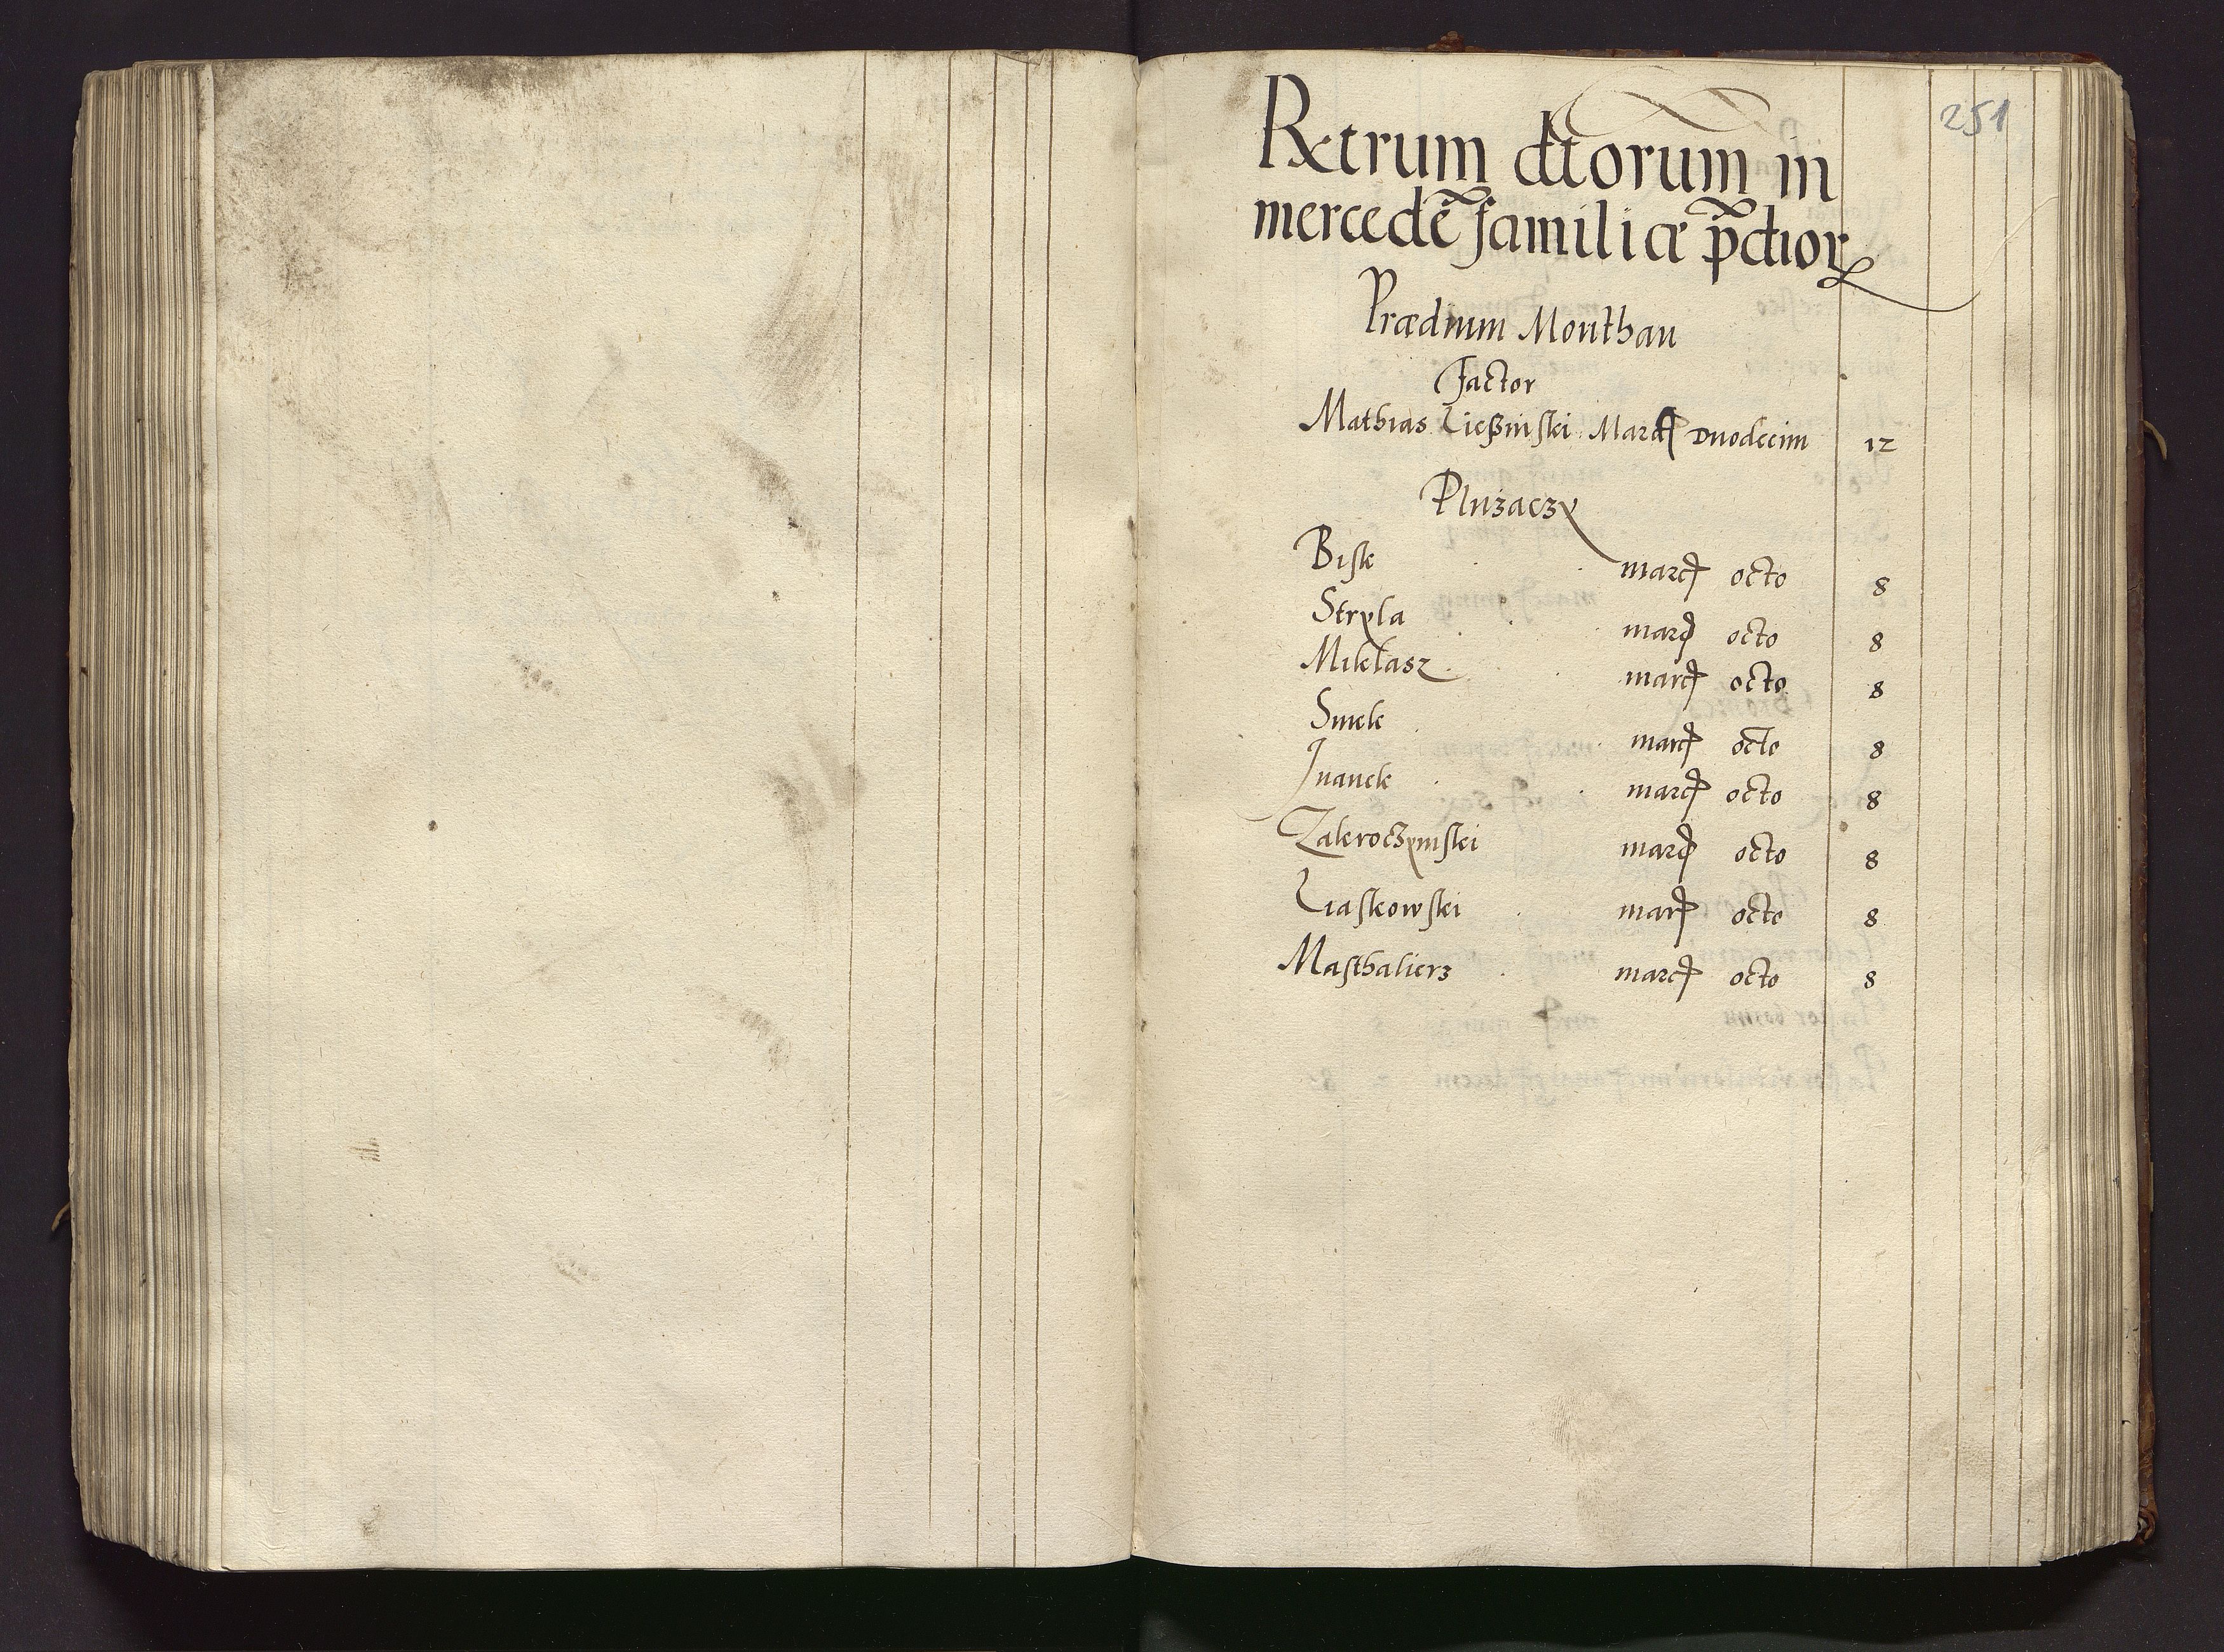 251
Rx̄trum dtorum in
mercedē familiæ p̄dior
Prædium Monthau
Factor
Mathias Lieβinski Marcꝭ Duodecim 12
Pluzaczy
Bisk marcꝭ octo 8
Stryla marcꝭ octo 8
Miklasz marcꝭ octo 8
Smek marcꝭ octo 8
Iwanek marcꝭ octo 8
Zakroczymski marcꝭ octo 8
Liaskowski marcꝭ octo 8
Masthalierz marcꝭ octo 8